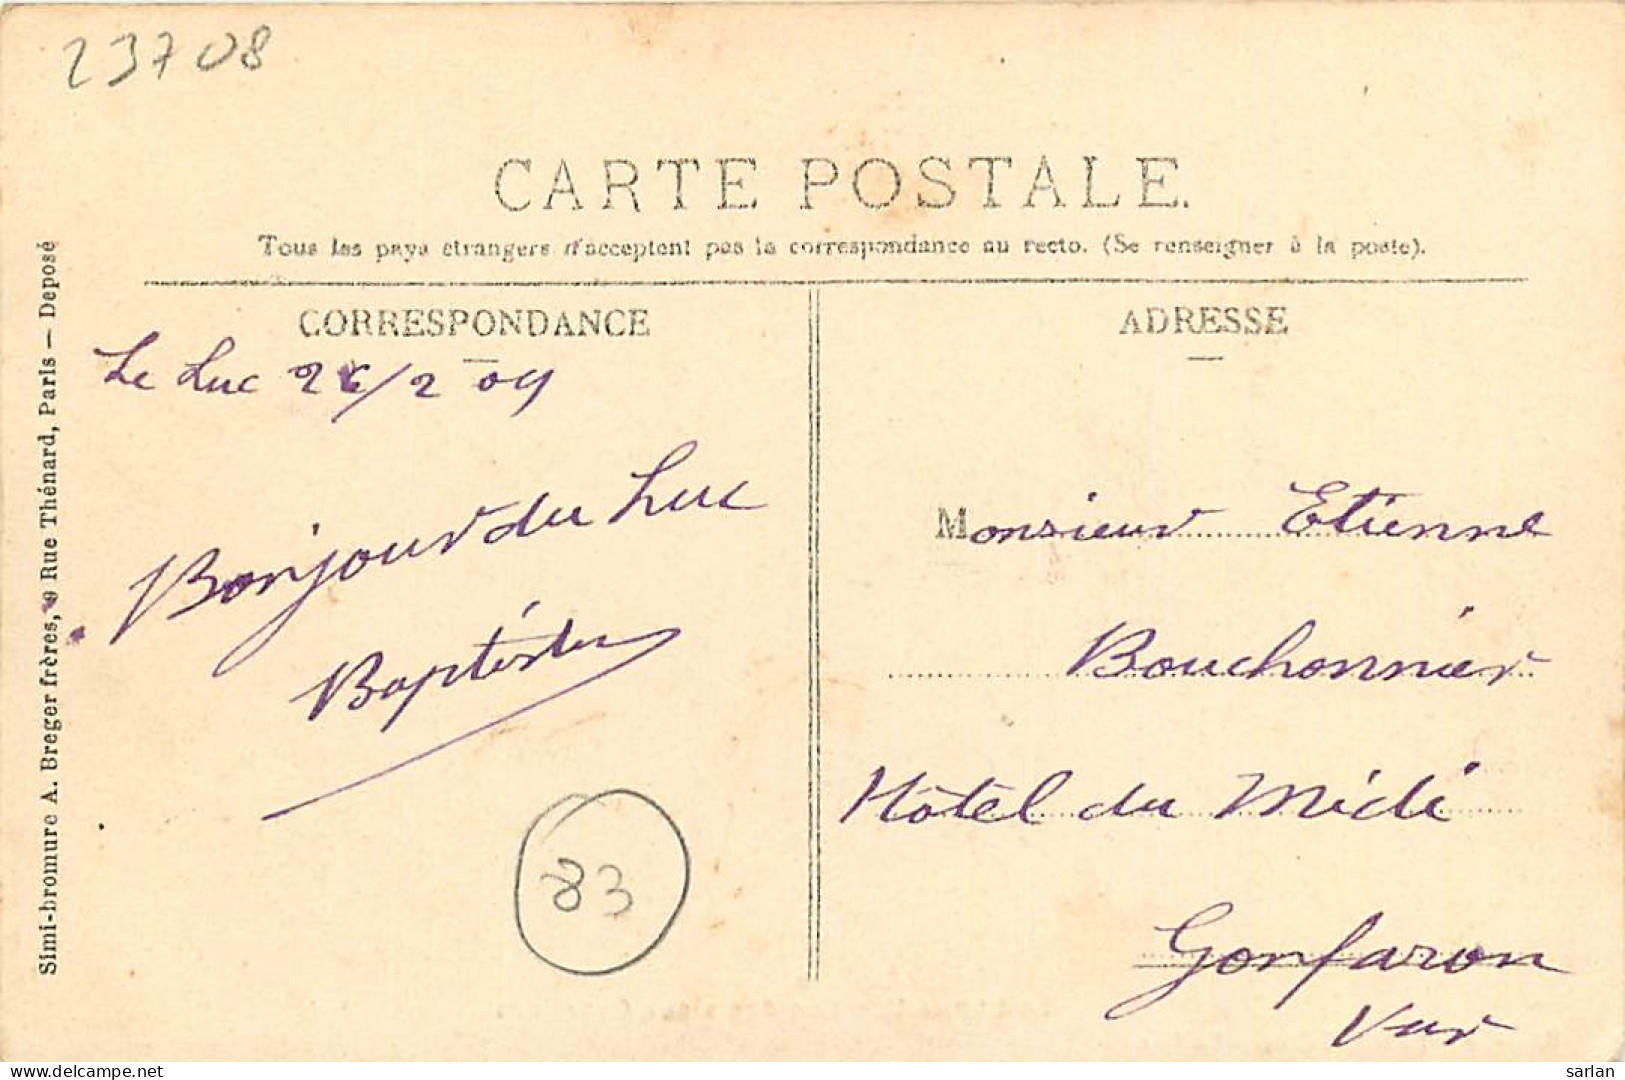 23708
CARTE POSTALE.
Tous les pays étrangers n'acceptent pas la correspondance au recto. (Se renseigner à la poste).
CORRESPONDANCE
Le Luc 26/2 09
Bonjour du Luc
Baptistin
83
ADRESSE
Monsieur Etienne
Bouchonnier
Hôtel du Midi
Gonfaron
Var
Simi-bromure A. Breger frères, 9 Rue Thénard, Paris — Deposé
delcampe.net
sarlan